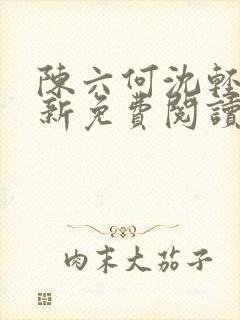 陳六何沈輕
新免費閱讀
肉末大茄子